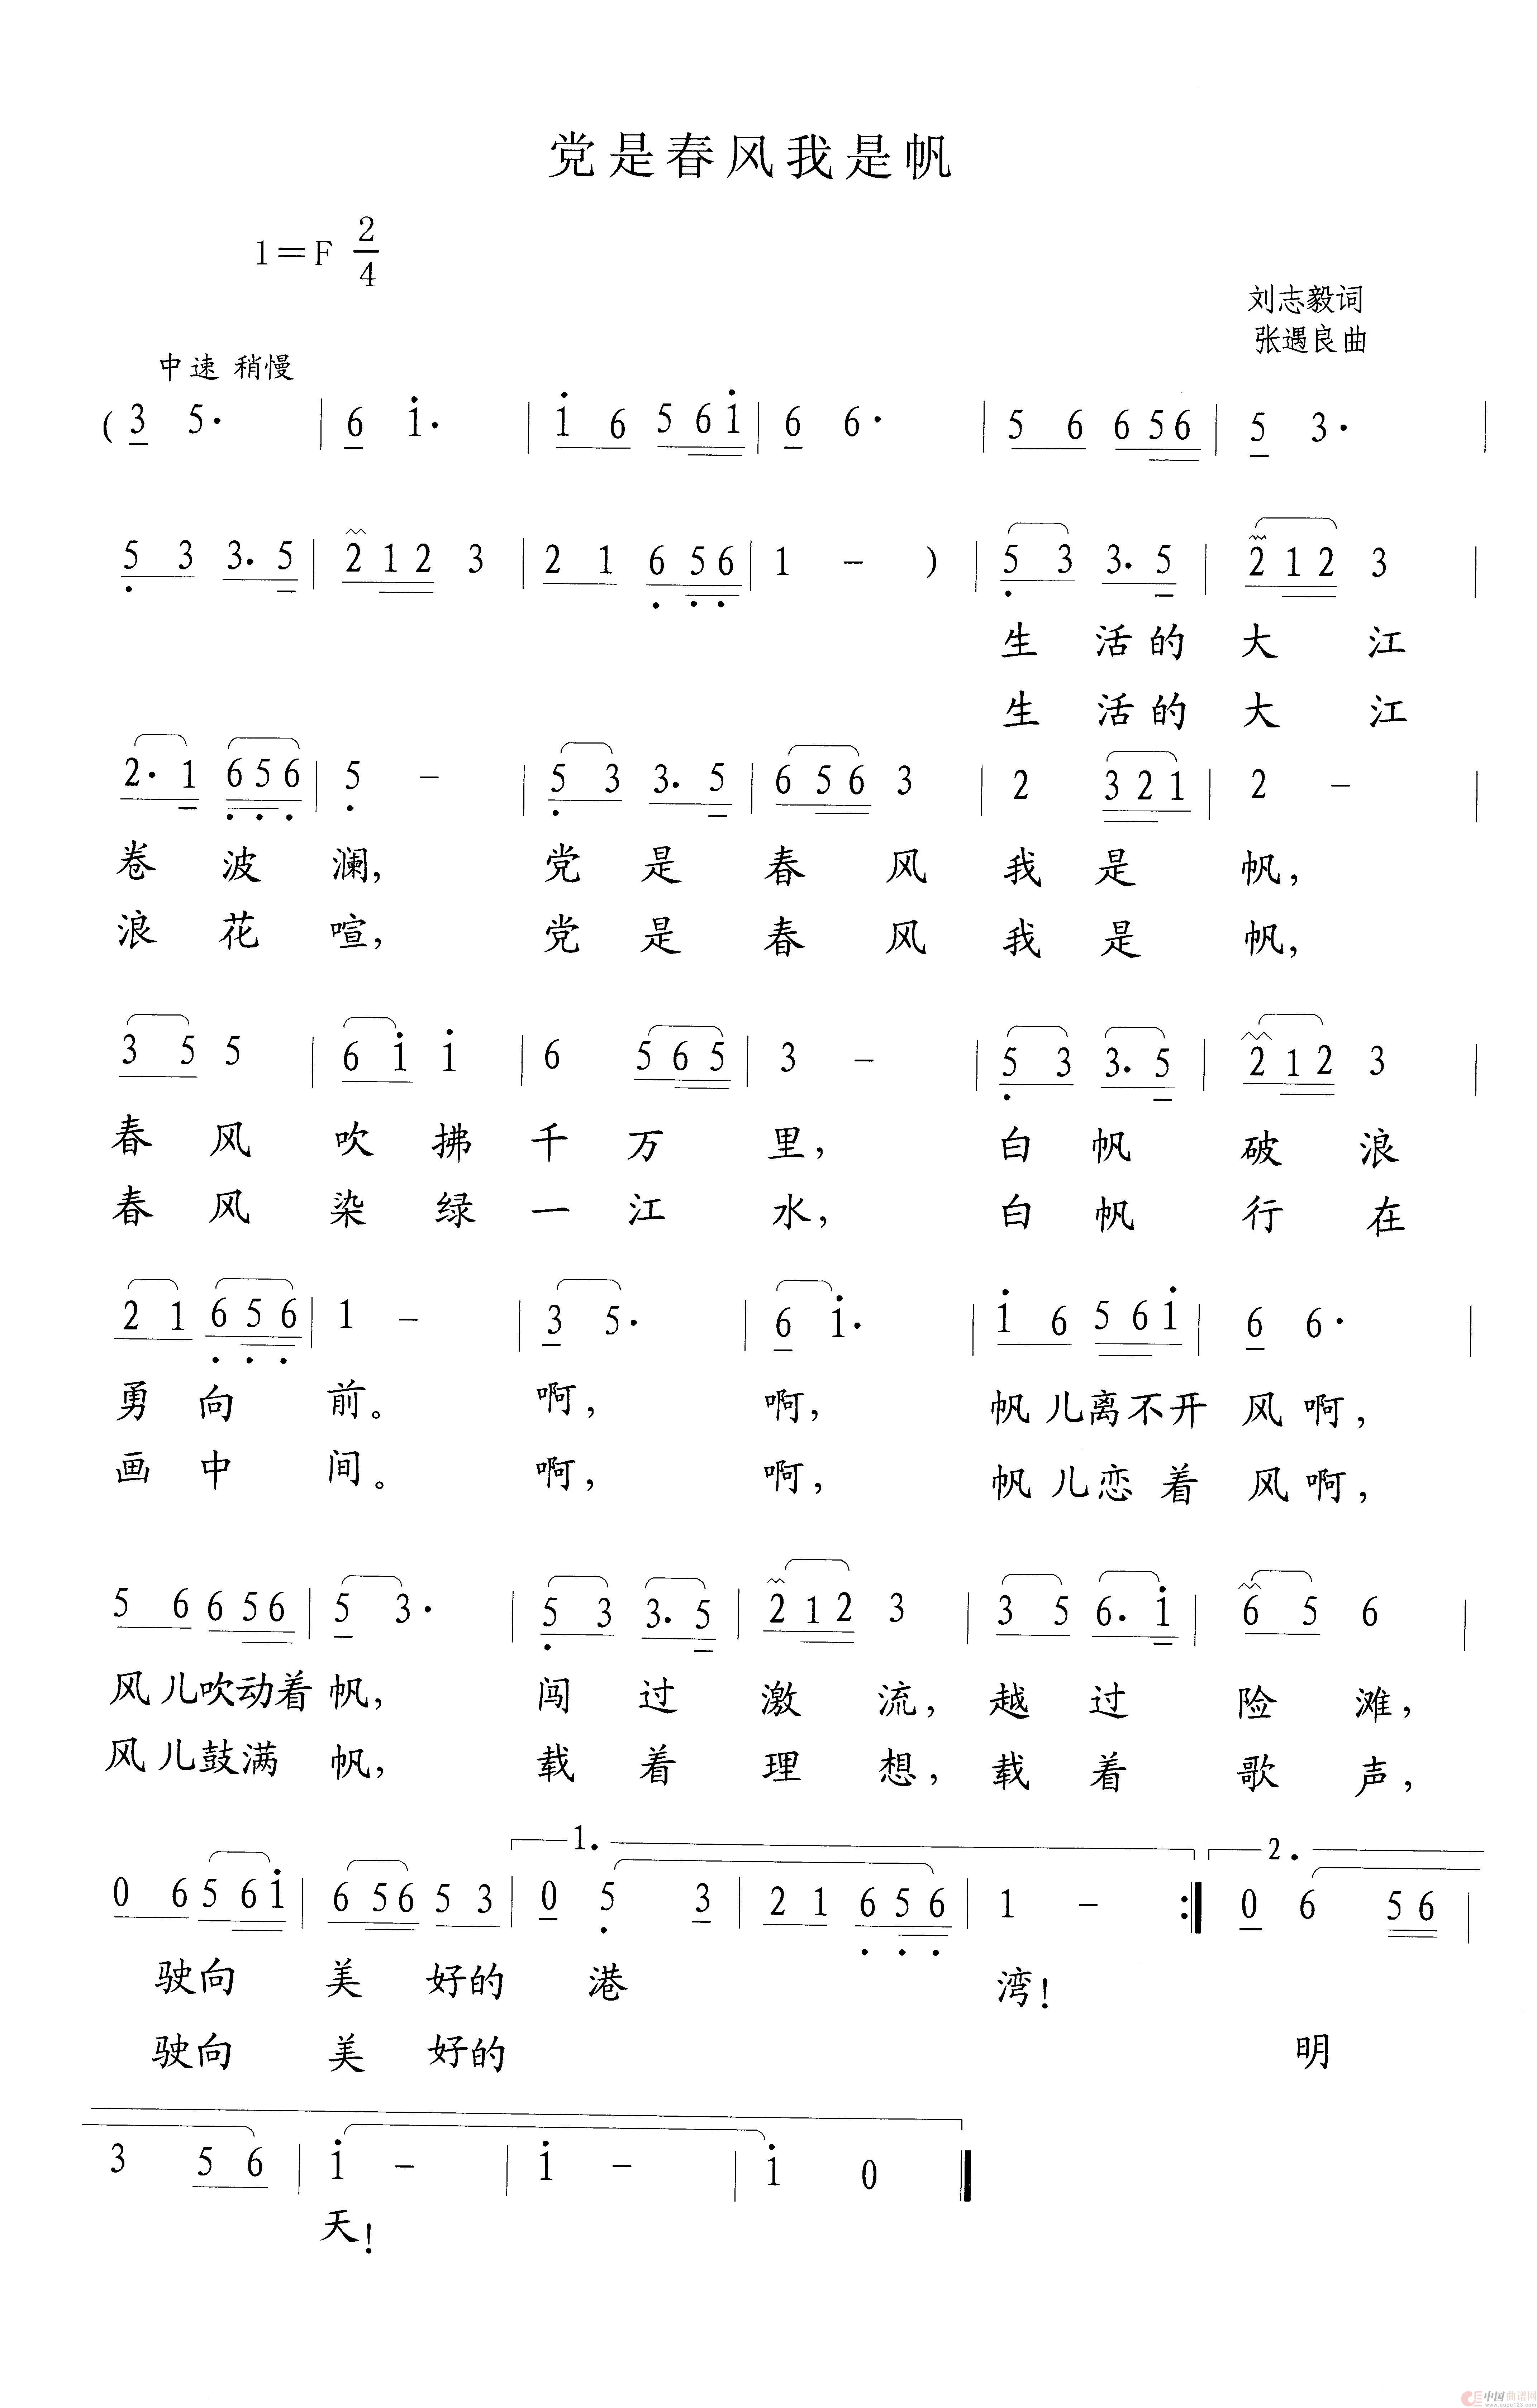 党是春风我是帆
1=F 2/4
刘志毅词
张遇良曲
中速 稍慢
( 3 5· | 6 i· | i 6 5 6 i | 6 6· | 5 6 6 5 6 | 5 3· |
5 3 3· 5 | 2 1 2 3 | 2 1 6 5 6 | 1 – ) | 5 3 3· 5 | 2 1 2 3 |
生 活的 大 江
生 活的 大 江
2· 1 6 5 6 | 5 – | 5 3 3· 5 | 6 5 6 3 | 2 3 2 1 | 2 – |
卷 波 澜, 党 是 春 风 我 是 帆,
浪 花 喧, 党 是 春 风 我 是 帆,
3 5 5 | 6 i i | 6 5 6 5 | 3 – | 5 3 3· 5 | 2 1 2 3 |
春 风 吹 拂 千 万 里, 白 帆 破 浪
春 风 染 绿 一 江 水, 白 帆 行 在
2 1 6 5 6 | 1 – | 3 5· | 6 i· | i 6 5 6 i | 6 6· |
勇 向 前。 啊, 啊, 帆儿离不开 风啊,
画 中 间。 啊, 啊, 帆儿恋着 风啊,
5 6 6 5 6 | 5 3· | 5 3 3· 5 | 2 1 2 3 | 3 5 6· i | 6 5 6 |
风儿吹动着 帆, 闯 过 激 流, 越 过 险 滩,
风儿鼓满 帆, 载 着 理 想, 载 着 歌 声,
1. 2.
0 6 5 6 i | 6 5 6 5 3 | 0 5 3 | 2 1 6 5 6 | 1 – :| 0 6 5 6 |
驶向 美 好的 港 湾!
驶向 美 好的 明
3 5 6 | i – | i – | i 0 ‖
天!
中国曲谱网
www.qupu123.com